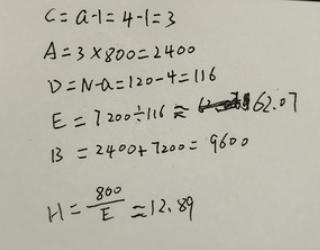 C = a-1 = 4-1 = 3
A = 3 × 800 = 2400
D = N-a = 120-4 = 116
E = 7200 ÷ 116 ≈ 62.07
B = 2400 + 7200 = 9600
H = 800/E ≈ 12.89